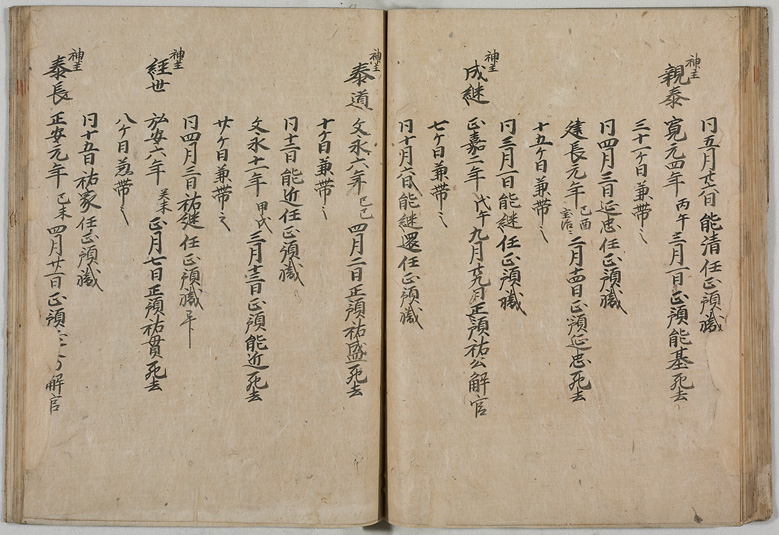 同五月廿六日能清任正預職
神主
親泰 寛元四年丙午三月一日正預能基死去
三十一ケ日兼帯之
同四月三日延忠任正預職
建長元年己酉 宝治三 二月十四日正預延忠死去
十五ケ日兼帯之
同三月一日能継任正預職
神主
成継 正嘉二年戊午九月廿九日正預祐公解官
七ケ日兼帯之
同十月六日能継還任正預職
神主
泰道 文永六年己巳四月二日正預祐盛死去
十ケ日兼帯之
同十二日能近任正預職
文永十一年甲戌三月十三日正預能近死去
廿ケ日兼帯之
同四月三日祐継任正預職
神主
経世 弘安六年癸未正月七日正預祐貫死去
八ケ日兼帯之
同十五日祐家任正預職
神主
泰長 正安元年己未四月廿一日正預 解官